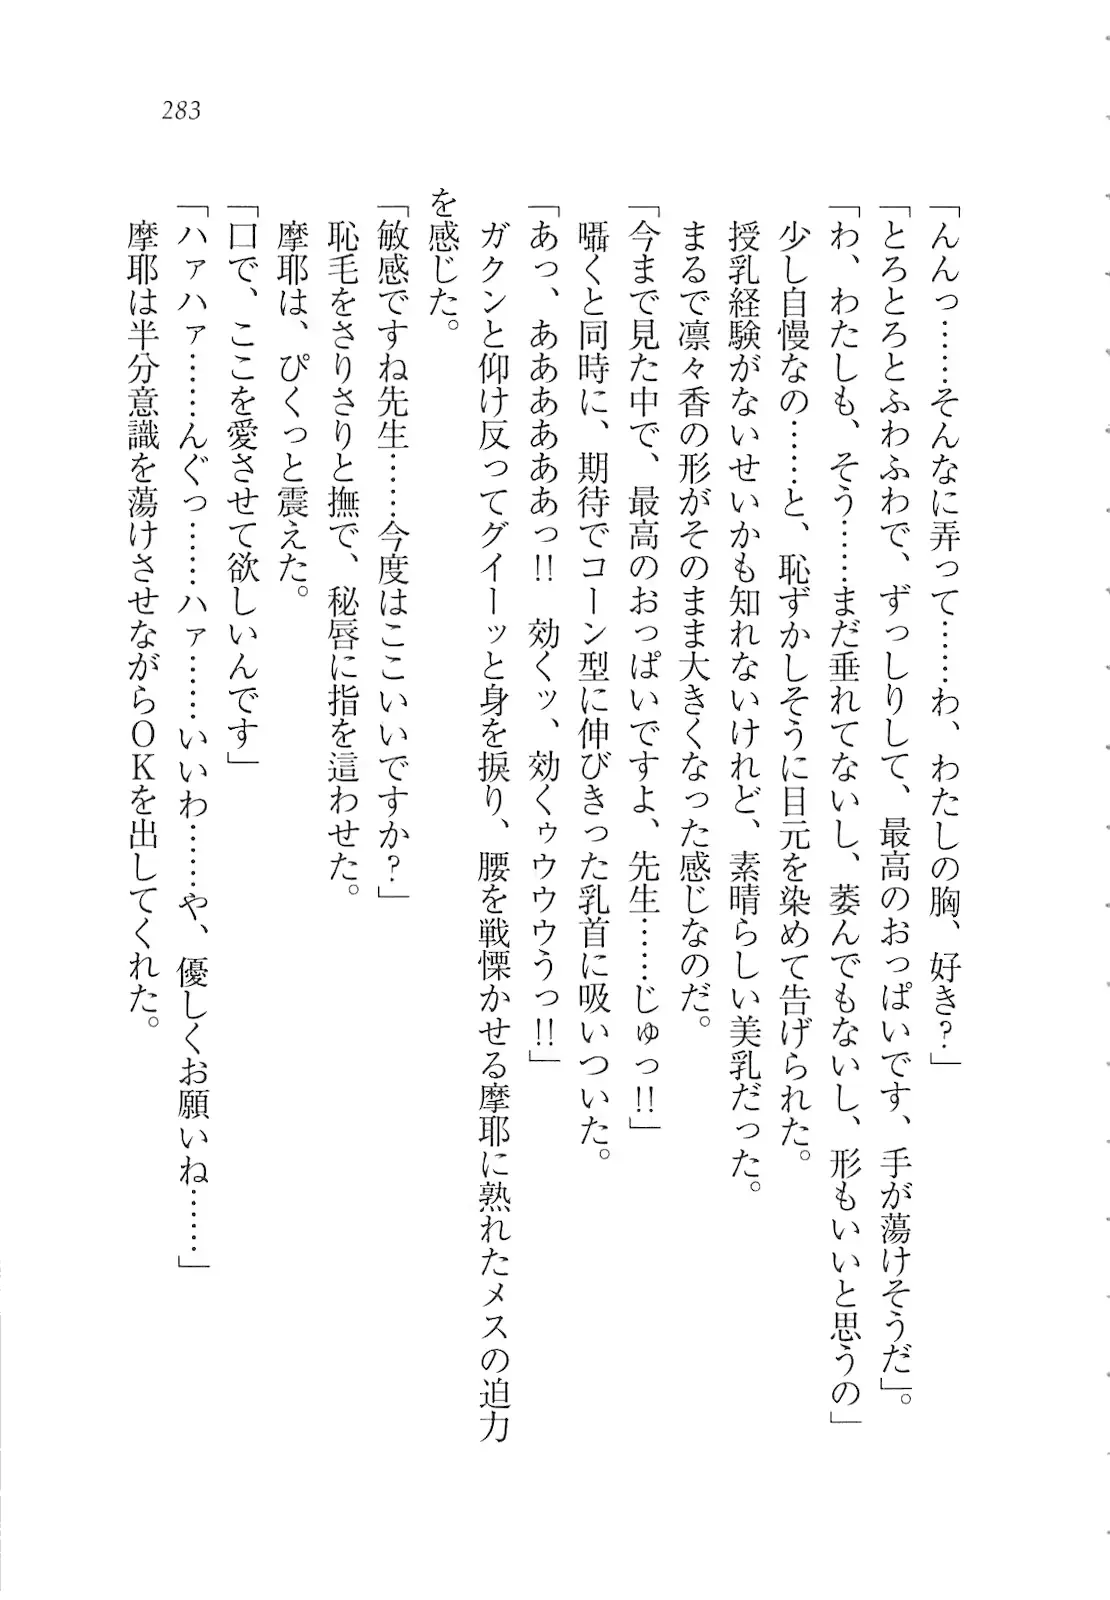 283
「んんっ……そんなに弄って……わ、わたしの胸、好き?」
「とろとろとふわふわで、ずっしりして、最高のおっぱいです、手が蕩けそうだ」。
「わ、わたしも、そう……まだ垂れてないし、萎んでもないし、形もいいと思うの」
少し自慢なの……と、恥ずかしそうに目元を染めて告げられた。
授乳経験がないせいかも知れないけれど、素晴らしい美乳だった。
まるで凛々香の形がそのまま大きくなった感じなのだ。
「今まで見た中で、最高のおっぱいですよ、先生……じゅっ!!」
囁くと同時に、期待でコーン型に伸びきった乳首に吸いついた。
「あっ、ああああああっ!! 効くッ、効くゥウウウうっ!!」
ガクンと仰け反ってグイーッと身を捩り、腰を戦慄かせる摩耶に熟れたメスの迫力
を感じた。
「敏感ですね先生……今度はここいいですか?」
恥毛をさりさりと撫で、秘唇に指を這わせた。
摩耶は、ぴくっと震えた。
「口で、ここを愛させて欲しいんです」
「ハァハァ……んぐっ……ハァ……いいわ……や、優しくお願いね……」
摩耶は半分意識を蕩けさせながらOKを出してくれた。